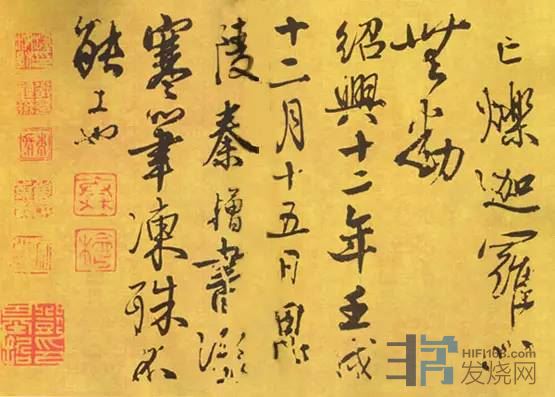 亡爍迦羅心
無動
紹興十二年壬戌
十二月十五日
陵秦檜書
寒筆凍殊不
能工也
HIFI168.com
发烧网